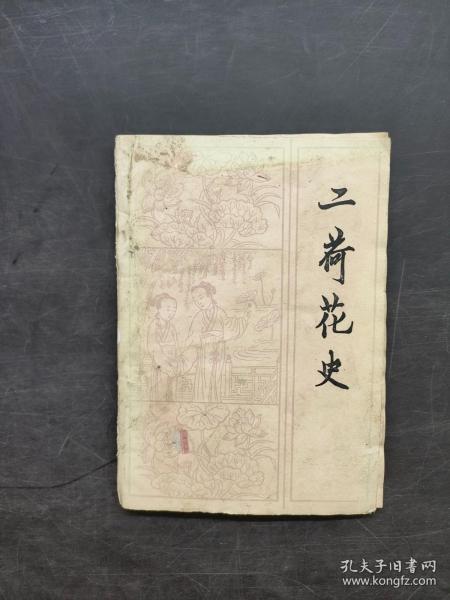 二荷花史
孔夫子旧书网
www.kongfz.com